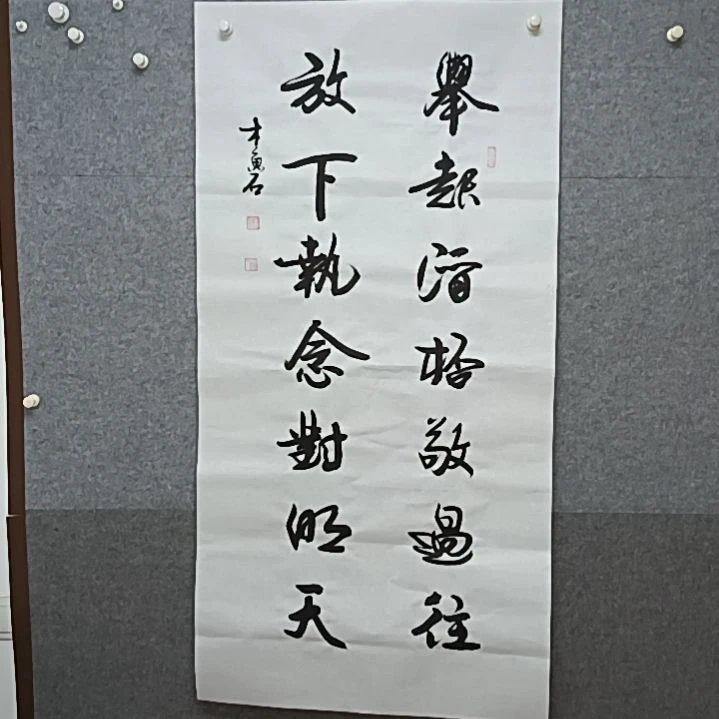 舉起酒杯敬過往
放下執念對明天
木魚石